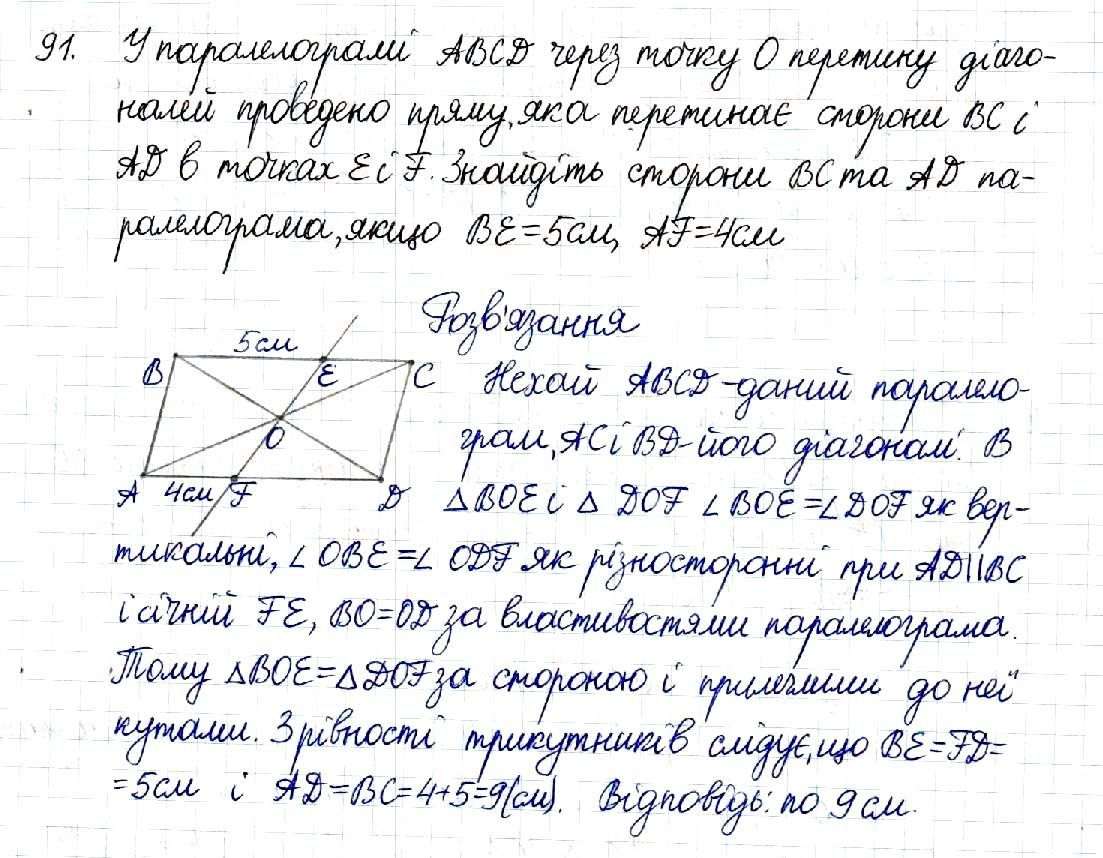 91. У паралелограмі ABCD через точку О перетину діаго-
налей проведено пряму, яка перетинає сторони BC і
AD в точках E і F. Знайдіть сторони BC та AD па-
ралелограма, якщо BE=5см, AF=4см
Розв'язання
5см
B
E
C
O
A
4см
F
D
Нехай ABCD-даний паралело-
грам, AC і BD-його діагоналі. В
△BOE і △ DOF ∠BOE=∠DOF як вер-
тикальні, ∠OBE=∠ODF як різносторонні при AD||BC
і січній FE, BO=OD за властивостями паралелограма.
Тому △BOE=△DOF за стороною і прилеглими до неї
кутами. З рівності трикутників слідує, що BE=FD=
=5см і AD=BC=4+5=9(см). Відповідь: по 9см.